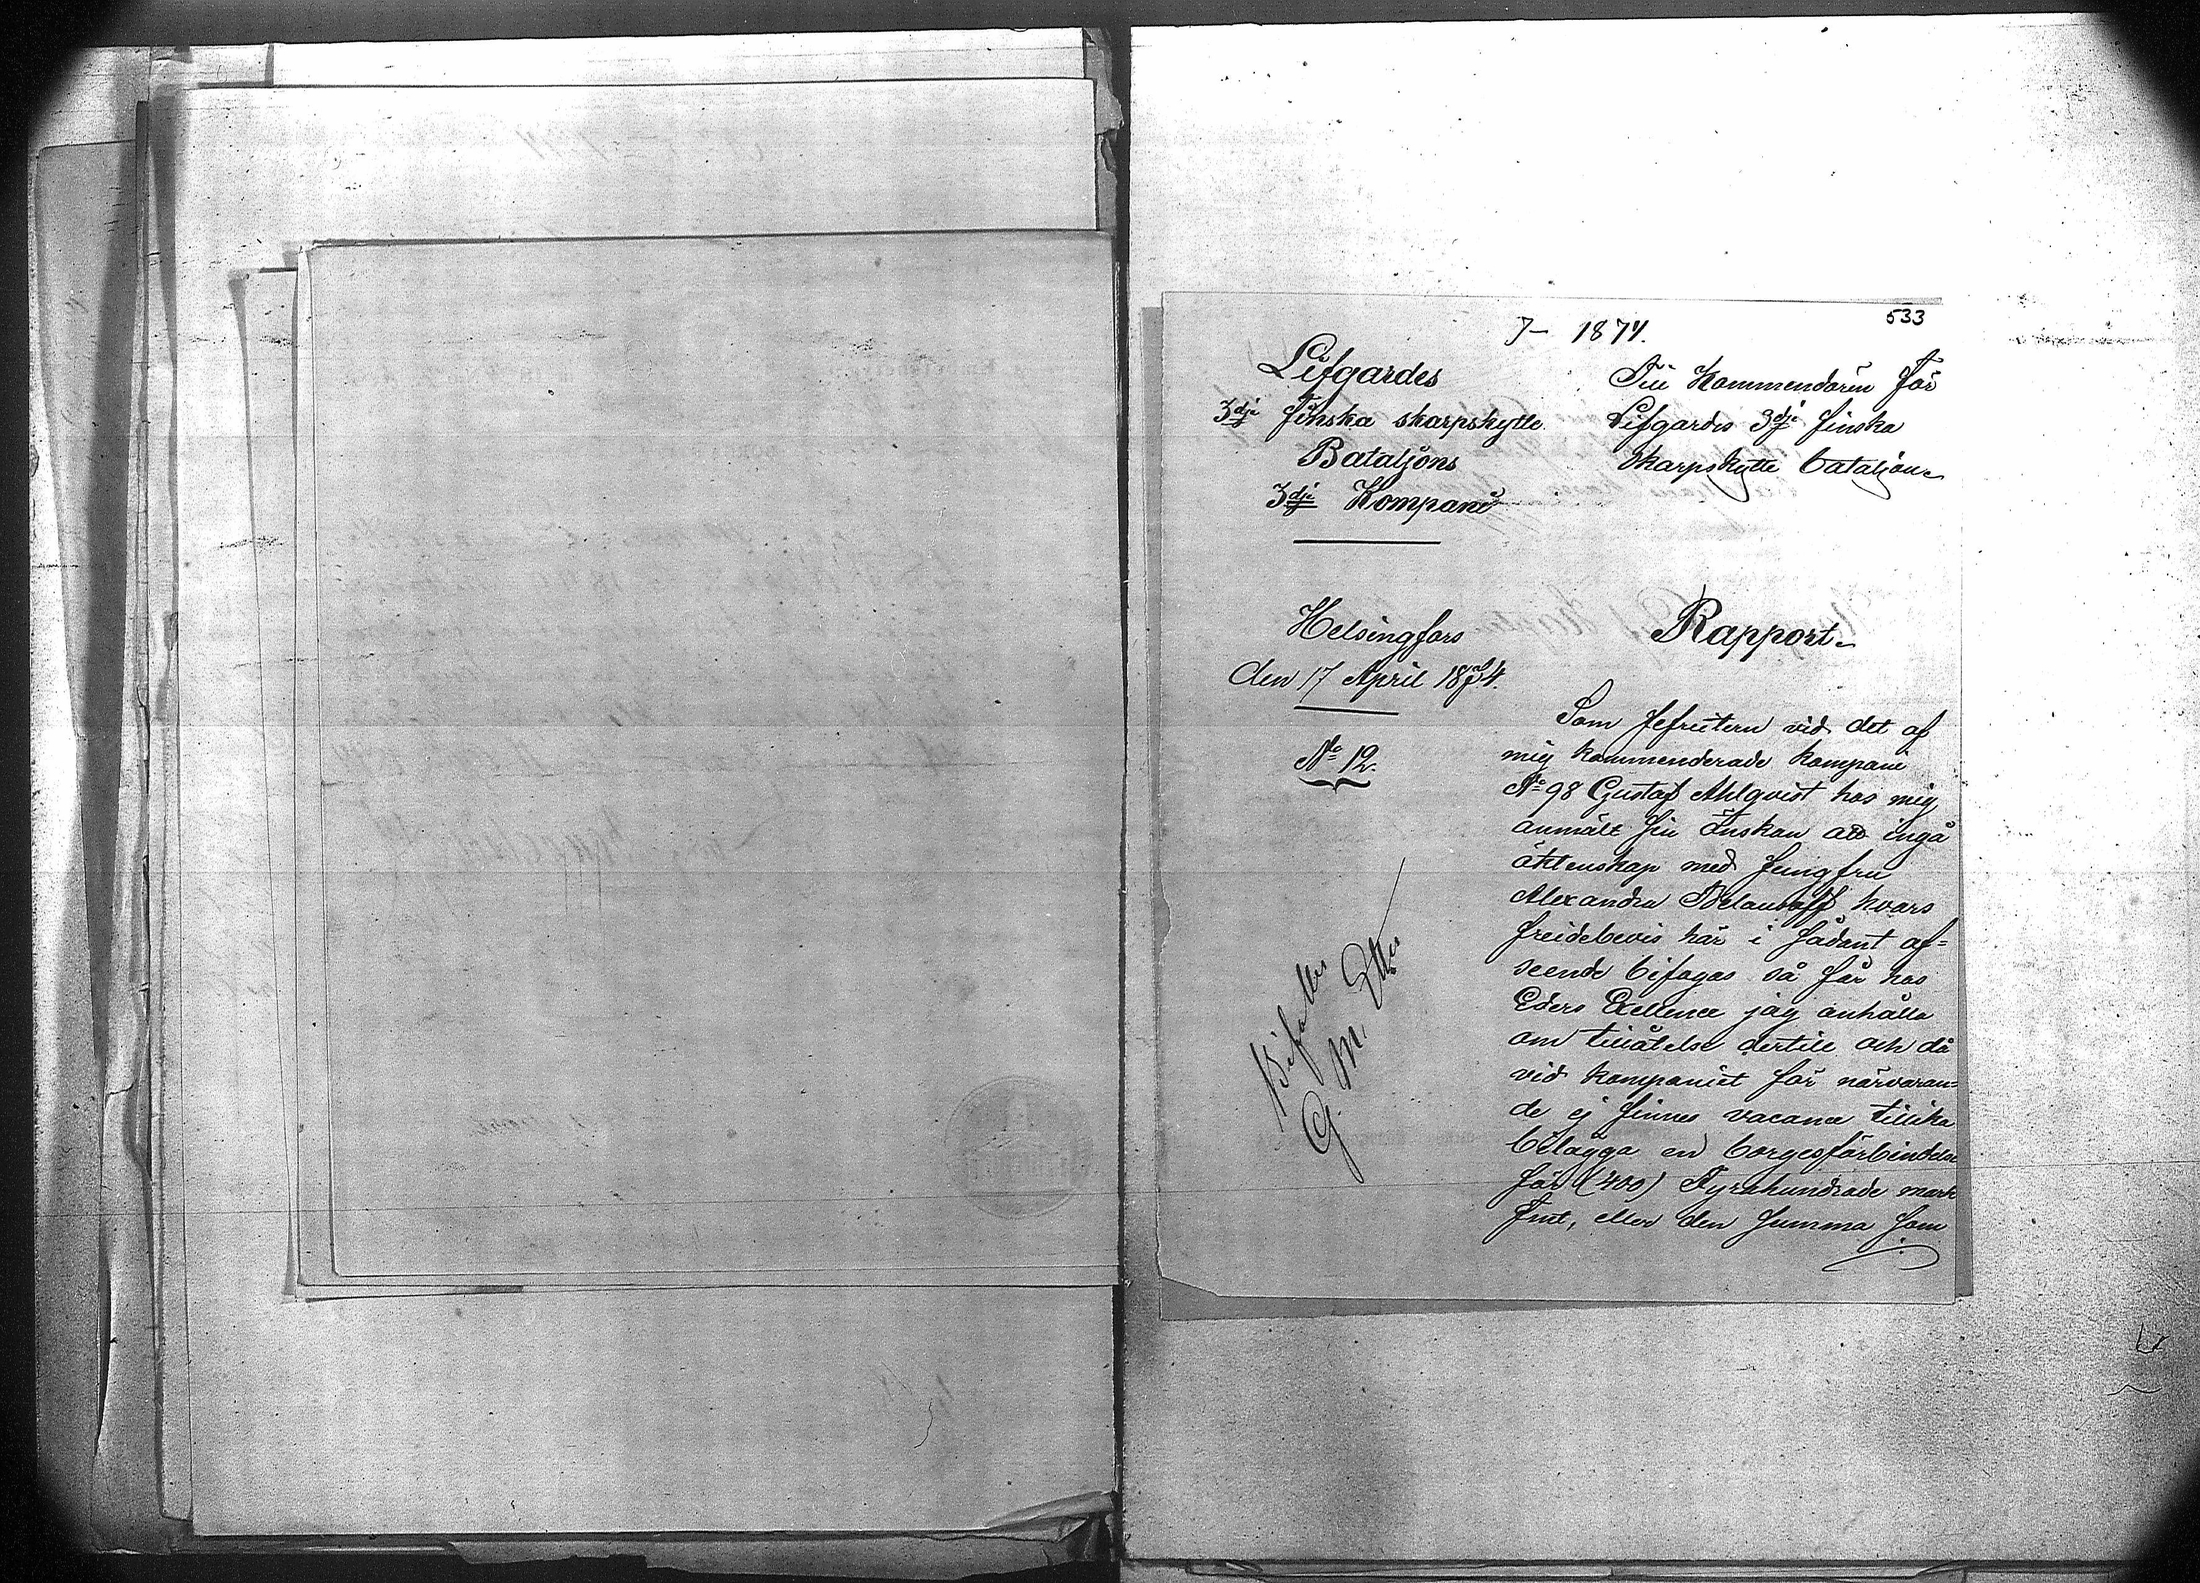 533
7– 1874.
Lifgardes
3dje Finska skarpskytte
Bataljons
3dje Kompani
Till Kommendören för
Lifgardes 3dje finska
skarpskytte bataljon
Helsingfors
den 17 April 1874.
No 12.
Rapport
Som Gefreitern vid det af
mig kommenderade kompani
No 98 Gustaf Ahlqvist hos mig
anmält sin önskan att ingå
äktenskap med Jungfru
Alexandra Belausoff hvars
freidebevis här i sådant af=
seende bifogas så får hos
Eders Exellence jag anhålla
om tillåtelse dertill och då
vid kompaniet för närvaran=
de ej finnes vacance tillika
bilägga en borgesförbindelse
för (400) Fyrahundrade mark
Fmt, eller den summa som
Bifalles
G. M. Etter